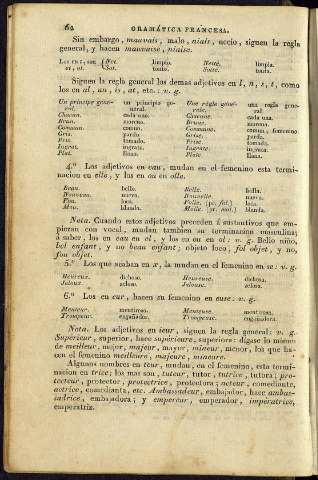 62 GRAMÁTICA FRANCESA.
Sin embargo, mauvais, malo, niais, necio, siguen la regla
general, y hacen mauvaise, niaise.
Net. limpio. Nette. limpia.
Sot. tonto. Sotte. tonta.
Siguen la regla general los demas adjetivos en l, n, s, t, como
los en al, an, is, at, etc.: v. g.
Un principe géné- un principio ge- Une règle géné- una regla gene-
ral. neral. rale. ral.
Chacun. cada uno. Chacune. cada una.
Brun. moreno. Brune. morena.
Commun. comun. Commune. comun, femenino
Gris. pardo. Grise. parda.
Pris. tomado. Prise. tomada.
Ingrat. ingrato. Ingrate. ingrata.
Plat. llano. Plate. llana.
4.º Los adjetivos en eau, mudan en el femenino esta termi-
nacion en elle, y los en ou en olle.
Beau. bello. Belle. bella.
Nouveau. nuevo. Nouvelle. nueva.
Fou. loco. Folle. loca.
Mou. blando. Molle. blanda.
Nota. Cuando estos adjetivos preceden á sustantivos que em-
piezan con vocal, mudan tambien su terminacion masculina;
á saber, los en eau en el, y los en ou en ol: v. g. Bello niño,
bel enfant, y no beau enfant; objeto loco, fol objet, y no,
fou objet.
5.º Los que acaban en x, la mudan en el femenino en se: v. g.
Heureux. dichoso. Heureuse. dichosa.
Jaloux. zeloso. Jalouse. zelosa.
6.º Los en eur, hacen su femenino en euse: v. g.
Menteur. mentiroso. Menteuse. mentirosa.
Trompeur. engañador. Trompeuse. engañadora.
Nota. Los adjetivos en ieur, siguen la regla general: v. g.
Supérieur, superior, hace supérieure, superiora: dígase lo mismo
de meilleur, mejor, majeur, mayor, mineur, menor, los que ha-
cen el femenino meilleure, majeure, mineure.
Algunos nombres en teur, mudan, en el femenino, esta termi-
nacion en trice; los mas son, tuteur, tutor, tutrice, tutora; pro-
tecteur, protector, protectrice, protectora; acteur, comediante,
actrice, comedianta, etc. Ambassadeur, embajador, hace ambas-
sadrice, embajadora; y empereur, emperador, impératrice,
emperatriz.